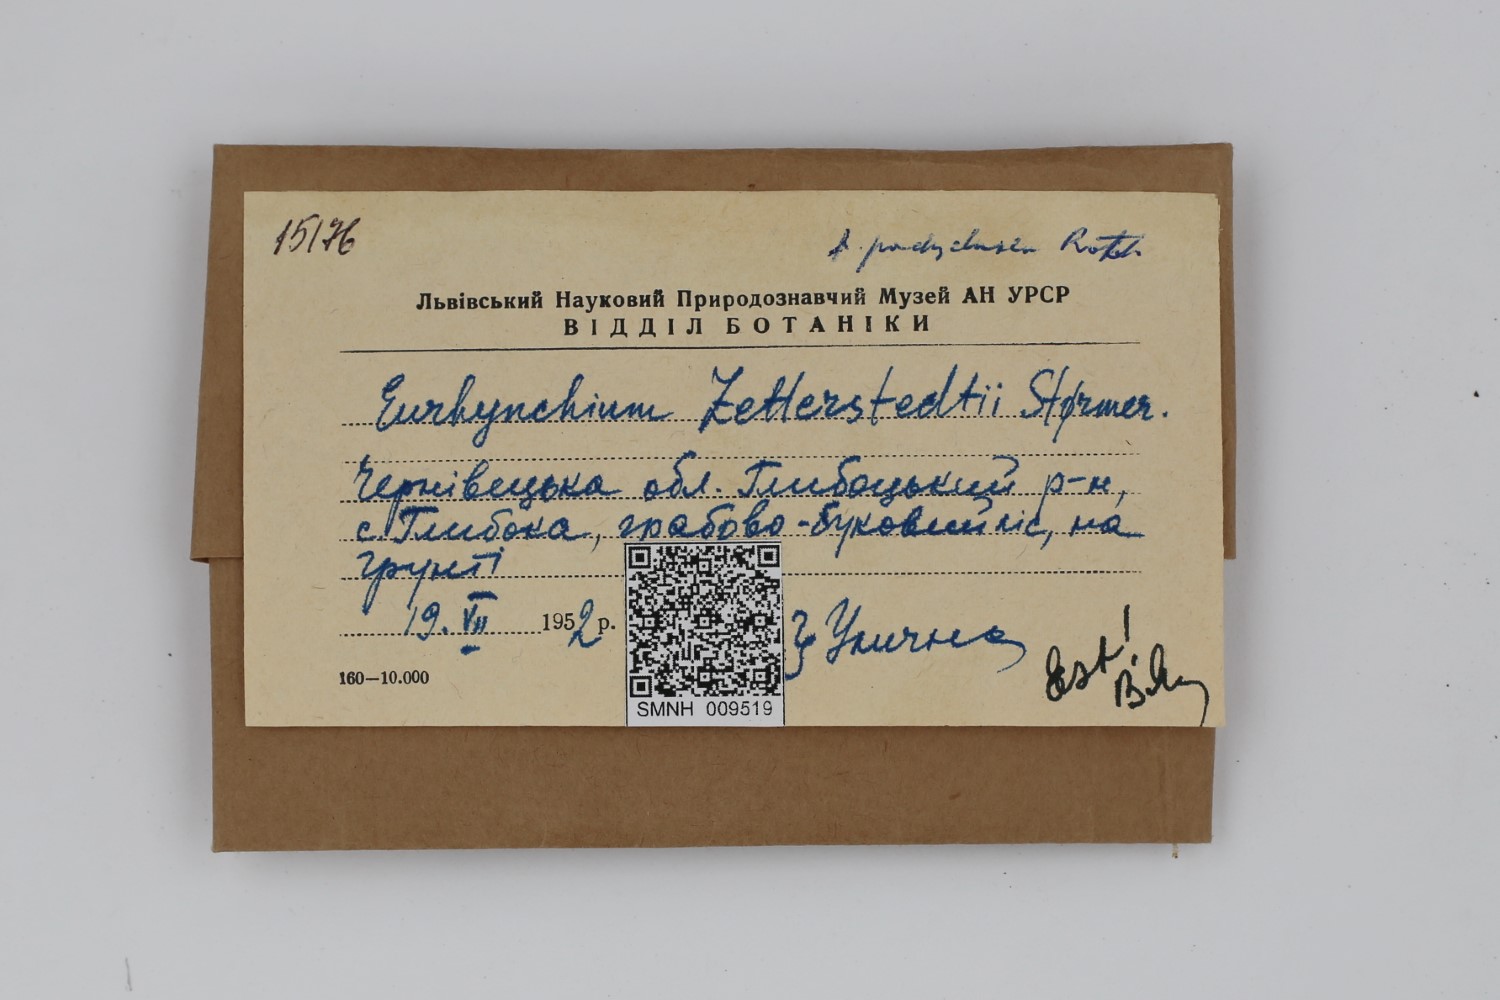 15176
Львівський Науковий Природознавчий Музей АН УРСР
ВІДДІЛ БОТАНІКИ
Eurhynchium Zetterstedtii Størmer.
Чернівецька обл. Глибоцький р-н,
с. Глибока, грабово-буковий ліс, на
грунті
19. VII 1952 р.
Улична
Est!
160—10.000
SMNH 009519